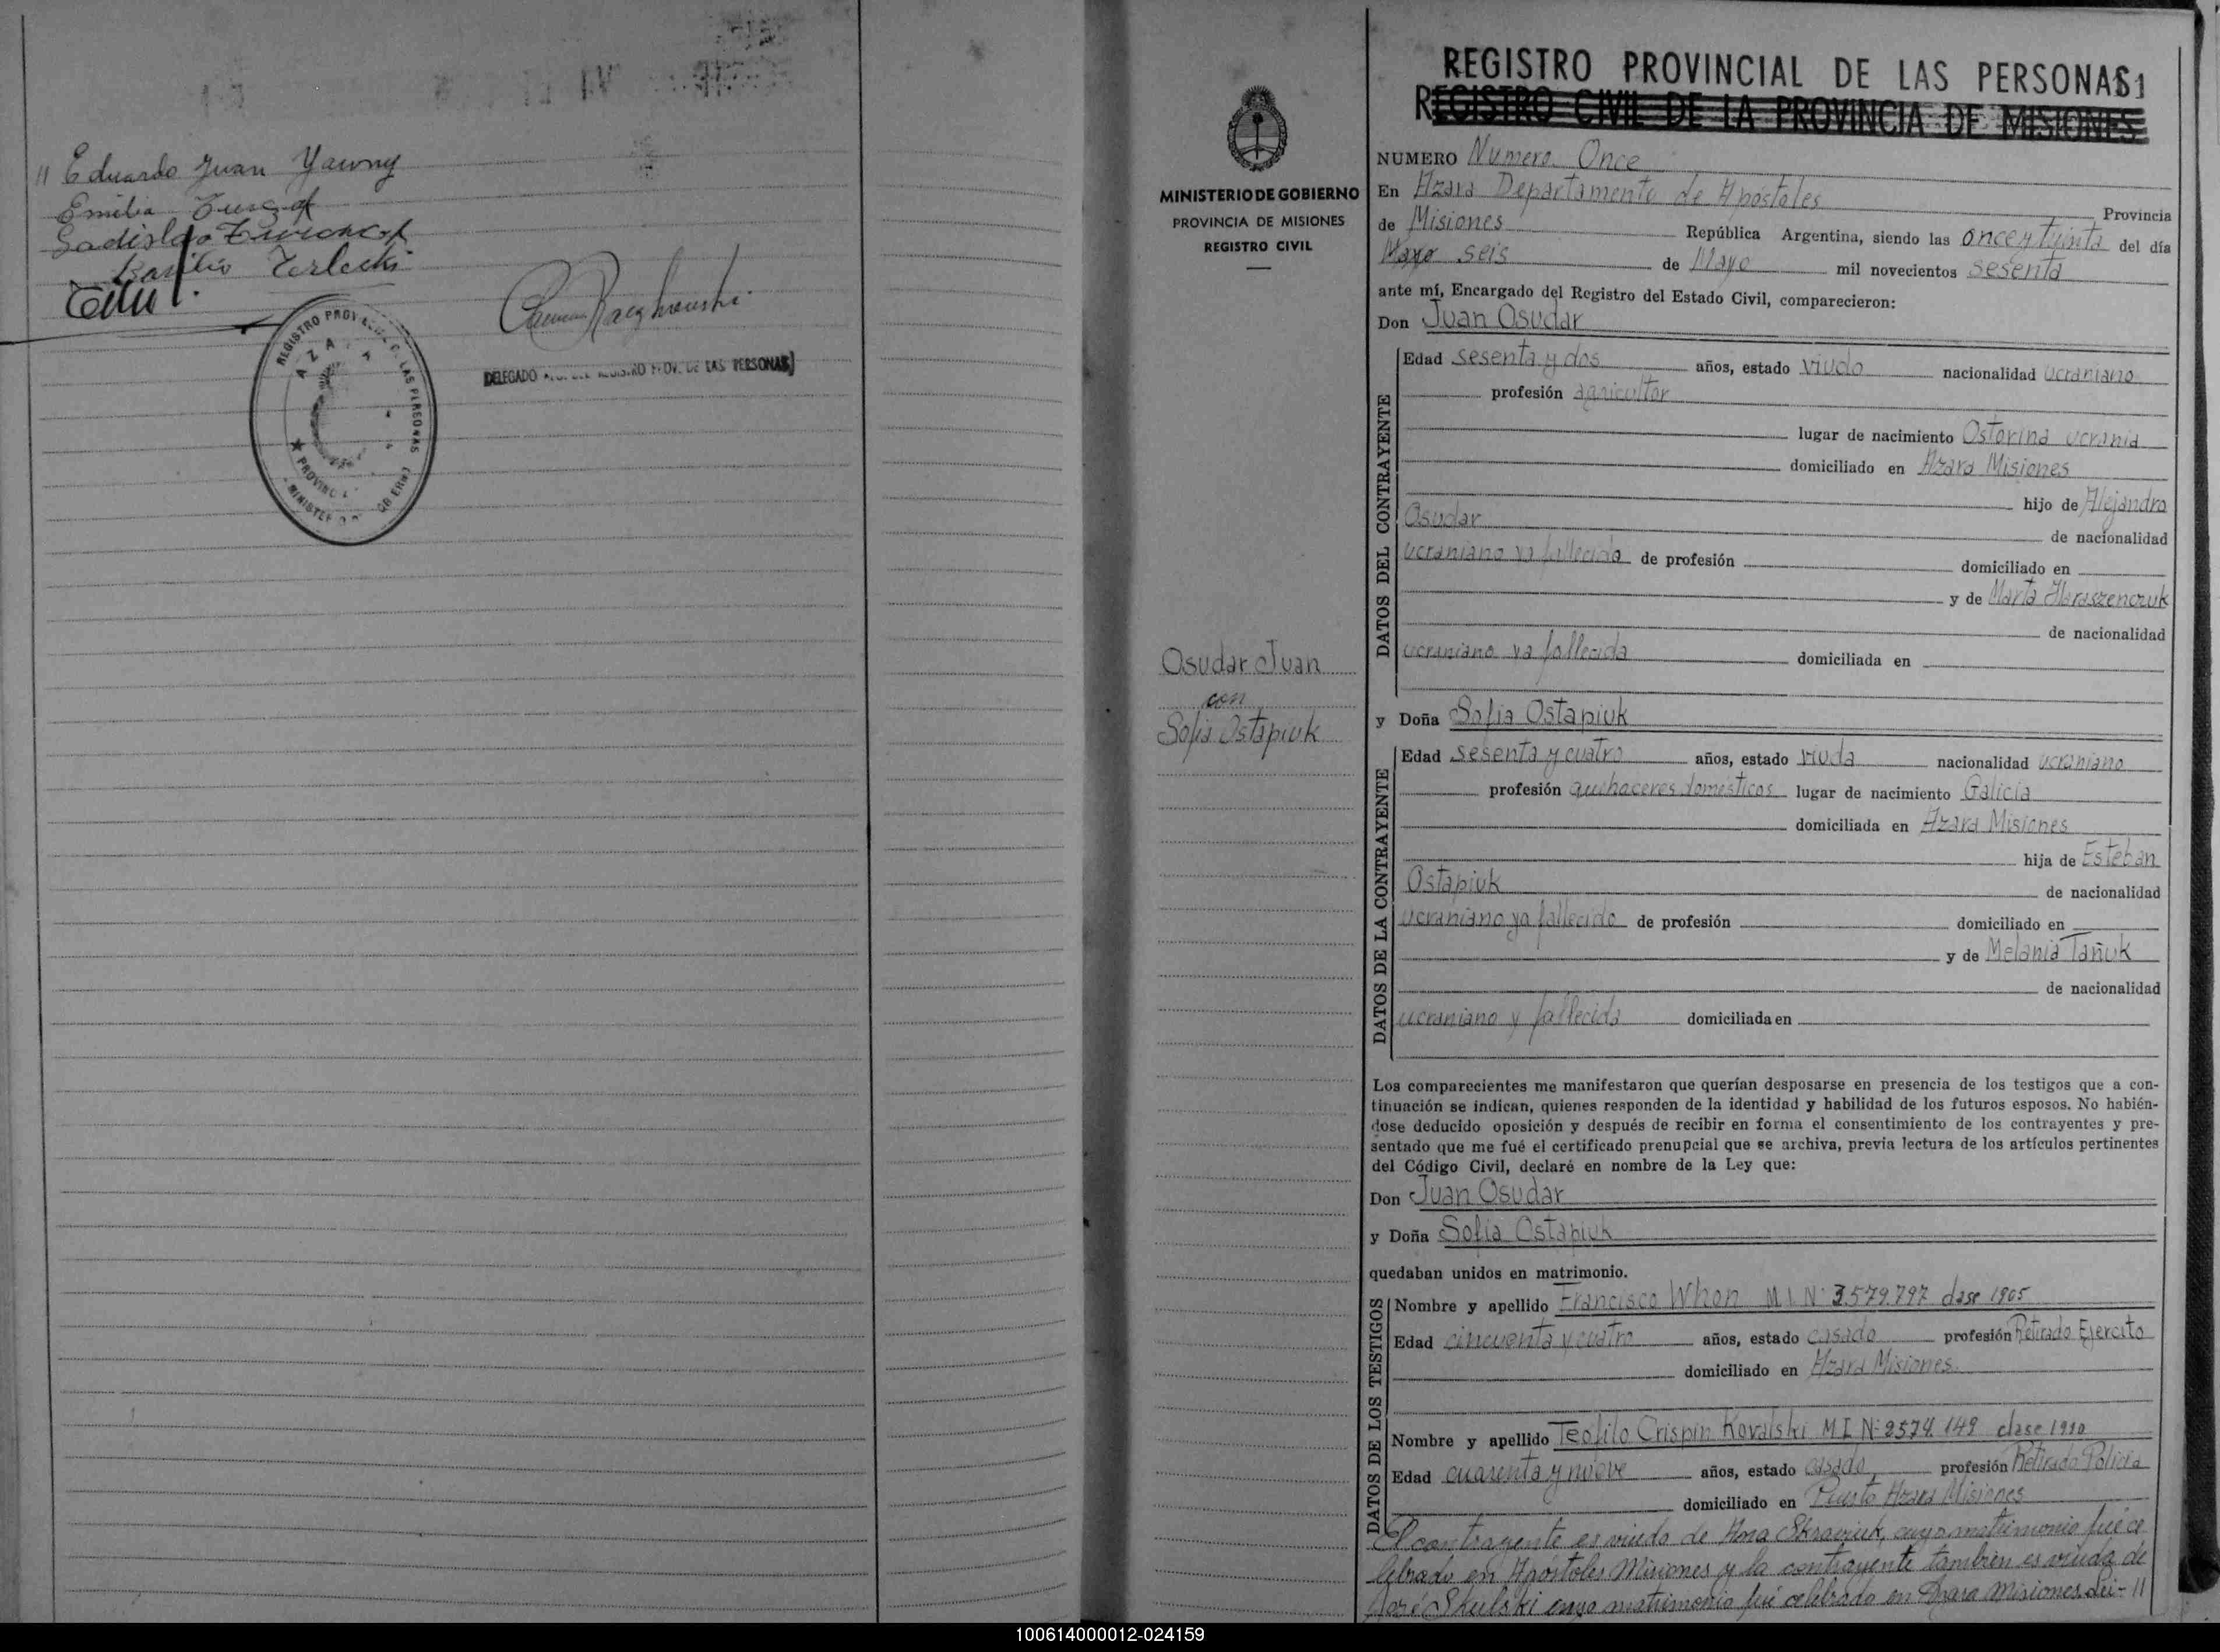 " Eduardo Juan Yawny
Emilia
Ladislao
Basilio Terlecki
REGISTRO PROV LAS PERSONAS
AZARA
MINISTE GOBIERNO
DELEGADO REGISTRO PROV. DE LAS PERSONAS
MINISTERIO DE GOBIERNO
PROVINCIA DE MISIONES
REGISTRO CIVIL
Osudar Juan
con
Sofia Ostapiuk
REGISTRO PROVINCIAL DE LAS PERSONAS
REGISTRO CIVIL DE LA PROVINCIA DE MISIONES
NUMERO Numero Once
En Azara Departamento de Apóstoles Provincia
de Misiones República Argentina, siendo las once y treinta del día
seis de Mayo mil novecientos sesenta
ante mí, Encargado del Registro del Estado Civil, comparecieron:
Don Juan Osudar
DATOS DEL CONTRAYENTE
Edad sesenta y dos años, estado viudo nacionalidad ucraniano
profesión agricultor
lugar de nacimiento Ostorina ucrania
domiciliado en Azara Misiones
hijo de Alejandro
Osudar de nacionalidad
ucraniano ya fallecido de profesión domiciliado en
y de Marta Haraszenczuk
de nacionalidad
ucraniano ya fallecida domiciliada en
y Doña Sofia Ostapiuk
DATOS DE LA CONTRAYENTE
Edad sesenta y cuatro años, estado viuda nacionalidad ucraniano
profesión quehaceres domésticos lugar de nacimiento Galicia
domiciliada en Azara Misiones
hija de Esteban
Ostapiuk de nacionalidad
ucraniano ya fallecido de profesión domiciliado en
y de Melania Tañuk
de nacionalidad
ucraniano y fallecida domiciliada en
Los comparecientes me manifestaron que querían desposarse en presencia de los testigos que a con-
tinuación se indican, quienes responden de la identidad y habilidad de los futuros esposos. No habién-
dose deducido oposición y después de recibir en forma el consentimiento de los contrayentes y pre-
sentado que me fué el certificado prenupcial que se archiva, previa lectura de los artículos pertinentes
del Código Civil, declaré en nombre de la Ley que:
Don Juan Osudar
y Doña Sofia Ostapiuk
quedaban unidos en matrimonio.
DATOS DE LOS TESTIGOS
Nombre y apellido Francisco Whon M.I. Nº 3.579.797 clase 1905
Edad cincuenta y cuatro años, estado casado profesión Retirado Ejercito
domiciliado en Azara Misiones.
Nombre y apellido Teofilo Crispin Kovalski M.I. Nº 2574.149 clase 1910
Edad cuarenta y nueve años, estado casado profesión Retirado Policia
domiciliado en Puerto Azara Misiones
El contrayente es viudo de Ana Skraviuk, cuyo matrimonio fué ce
lebrado en Apóstoles Misiones y la contrayente tambien es viuda de
José Skulski cuyo matrimonio fué celebrado en Azara Misiones. Lei- "
100614000012-024159